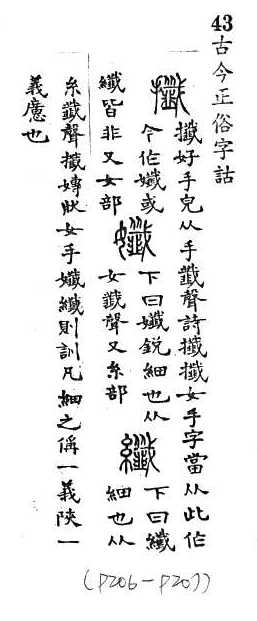 43
古今正俗字詁
攕
攕好手皃从手韱聲詩攕攕女手字當从此作
今作孅或
纖皆非又女部
孅
下曰孅銳細也从
女韱聲又糸部
纖
下曰纖
細也从
糸韱聲攕嫥狀女手孅纖則訓凡細之偁一義陜一
義廣也
(P206-P207)